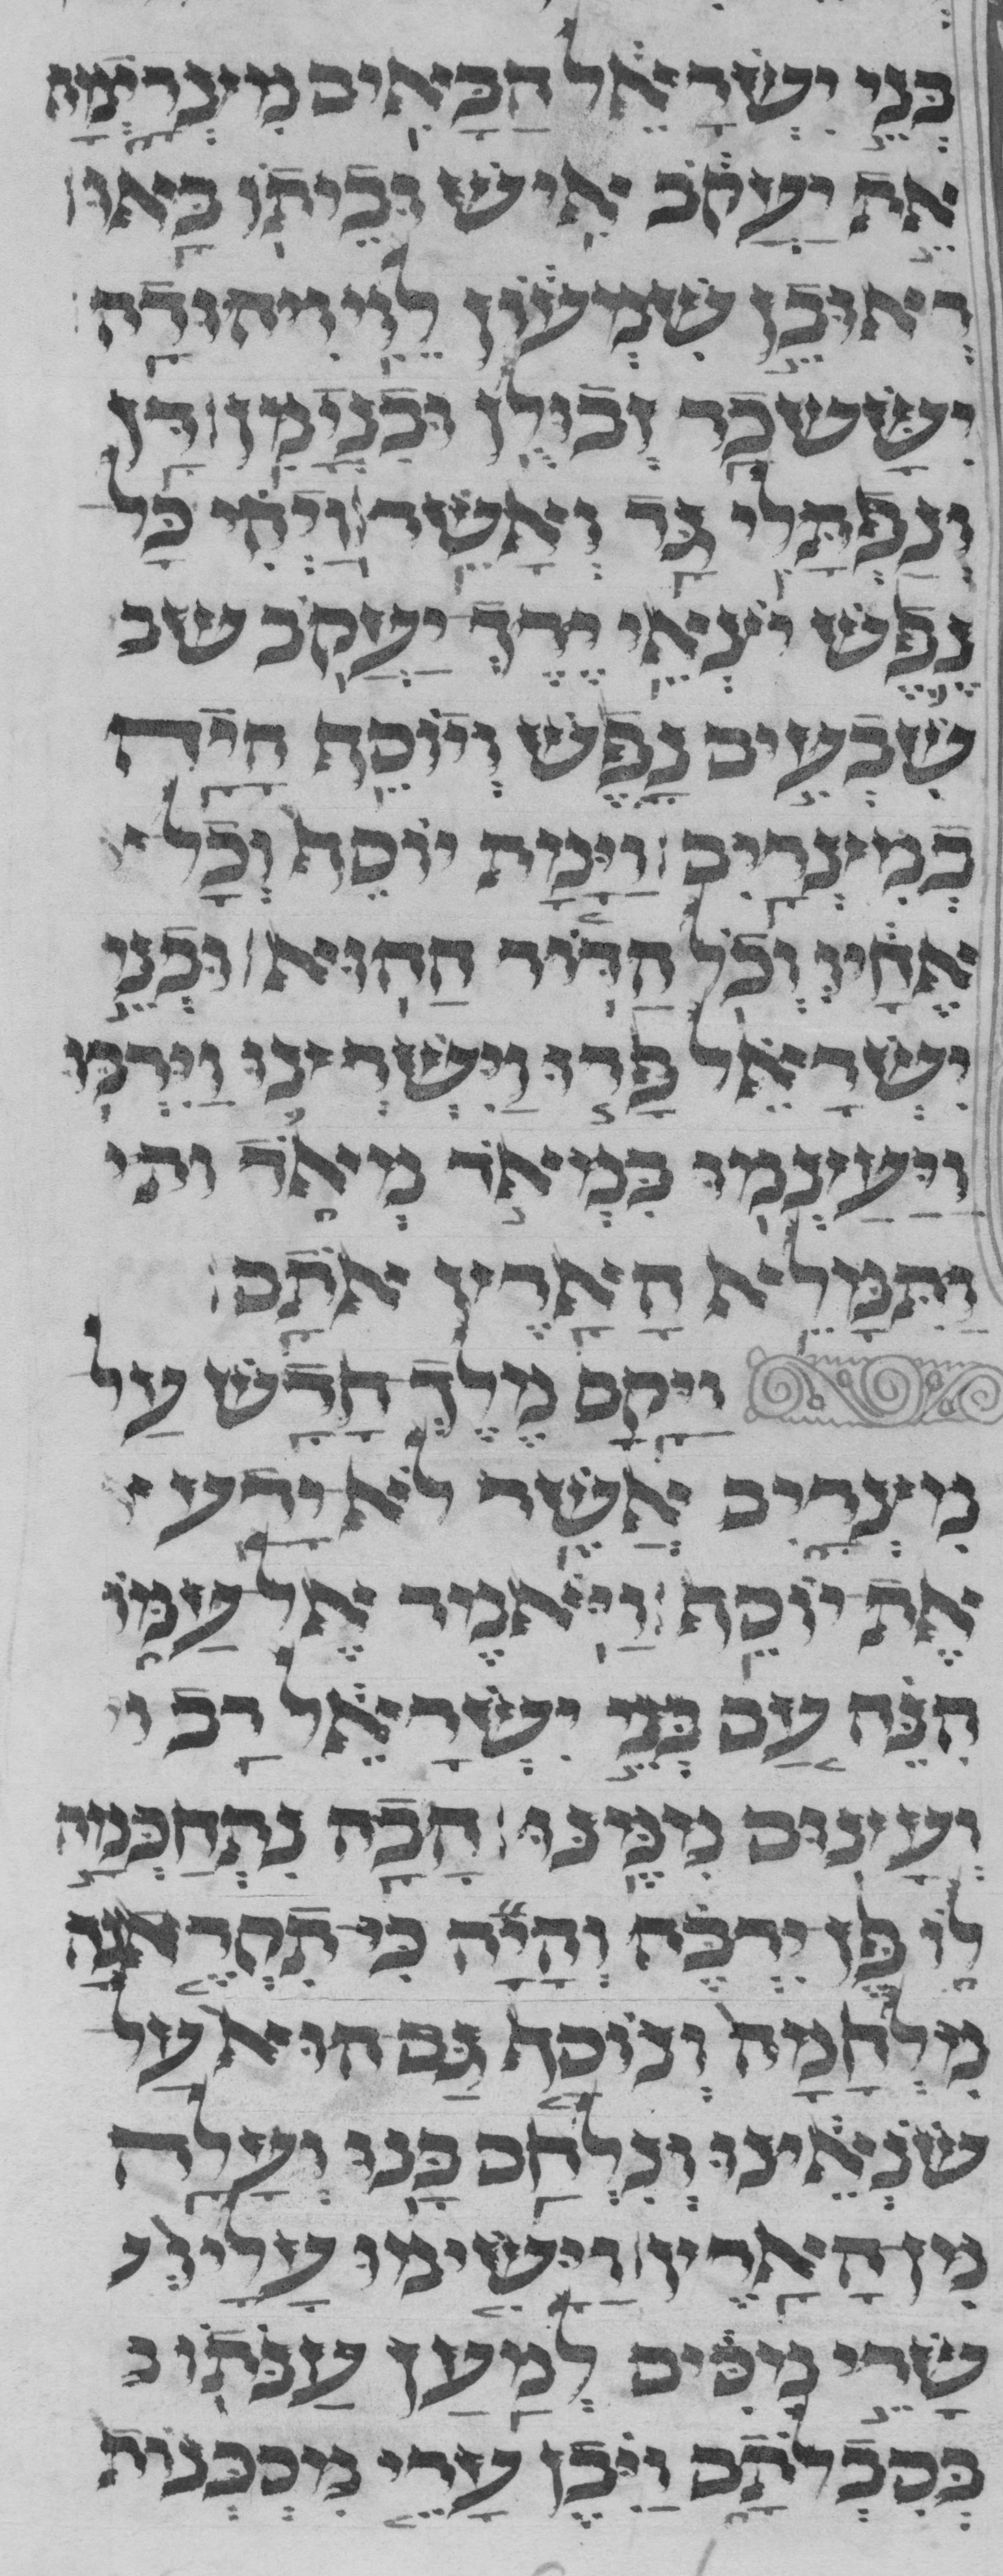 בני ישראל הבאים מצרימה
את יעקב איש וביתו באו
ראובן שמעון לוי ויהודה
יששכר זבולן ובנימן דן
ונפתלי גד ואשר ויהי כל
נפש יצאי ירך יעקב שב
שבעים נפש ויוסף היה
במצרים וימת יוסף וכל
אחיו וכל הדור ההוא ובני
ישראל פרו וישרצו וירבו
ויעצמו במאד מאד ות
ותמלא הארץ אתם
ויקם מלך חדש על
מצרים אשר לא ידע
את יוסף ויאמר אל עמו
הנה עם בני ישראל רב ו
ועצום ממנו הבה נתחכמה
לו פן ירבה והיה כי תקראנה
מלחמה ונוסף גם הוא על
שנאינו ונלחם בנו ועלה
מן הארץ וישימו עליו
שרי מסים למען ענתו ב
בסבלתם ויבן ערי מסכנות